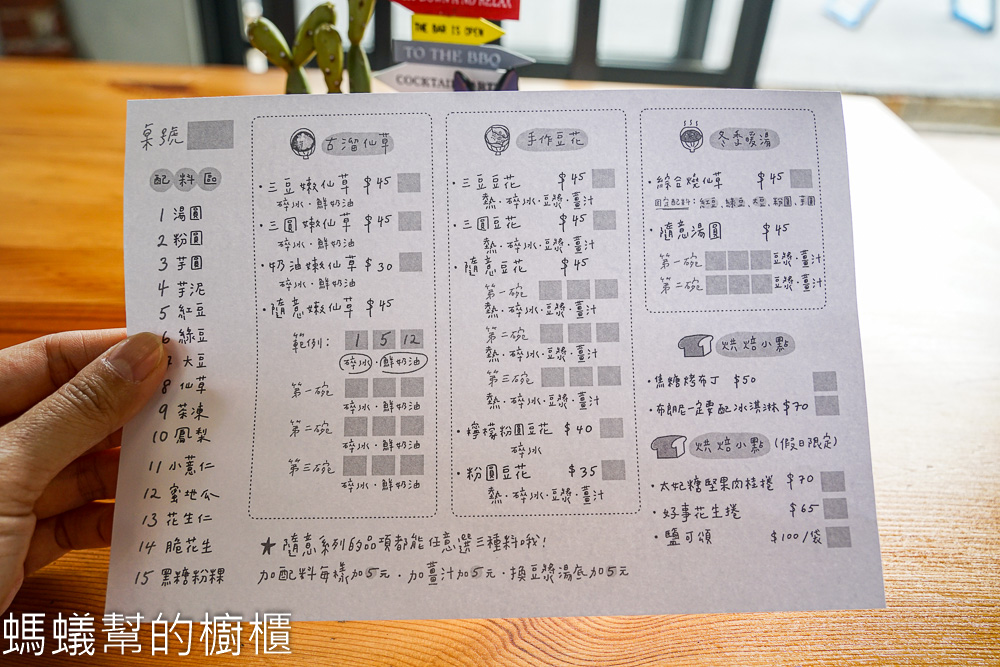 AND NO RELAX
THE BAR IS OPEN
TO THE BBQ
COCKTAIL
桌號
配料區
1 湯圓
2 粉圓
3 芋圓
4 芋泥
5 紅豆
6 綠豆
7 大豆
8 仙草
9 茶凍
10 鳳梨
11 小薏仁
12 蜜地瓜
13 花生仁
14 脆花生
15 黑糖粉粿
古溜仙草
・三豆嫩仙草 $45
碎冰・鮮奶油
・三圓嫩仙草 $45
碎冰・鮮奶油
・奶油嫩仙草 $30
碎冰・鮮奶油
・隨意嫩仙草 $45
範例: 1 5 12
碎冰・鮮奶油
第一碗
碎冰・鮮奶油
第二碗
碎冰・鮮奶油
第三碗
碎冰・鮮奶油
手作豆花
・三豆豆花 $45
熱・碎冰・豆漿・薑汁
・三圓豆花 $45
熱・碎冰・豆漿・薑汁
・隨意豆花 $45
第一碗
熱・碎冰・豆漿・薑汁
第二碗
熱・碎冰・豆漿・薑汁
第三碗
熱・碎冰・豆漿・薑汁
・檸檬粉圓豆花 $40
碎冰
・粉圓豆花 $35
熱・碎冰・豆漿・薑汁
冬季暖湯
・綜合燒仙草 $45
固定配料:紅豆、綠豆、大豆、粉圓、芋圓
・隨意湯圓 $45
第一碗 豆漿・薑汁
第二碗 豆漿・薑汁
烘焙小點
・焦糖烤布丁 $50
・布朗尼一定要配冰淇淋 $70
烘焙小點 (假日限定)
・太妃糖堅果肉桂捲 $70
・好事花生捲 $65
・鹽可頌 $100/袋
★ 隨意系列的品項都能任意選三種料哦!
加配料每樣加5元・加薑汁加5元・換豆漿湯底加5元
螞蟻幫的櫥櫃